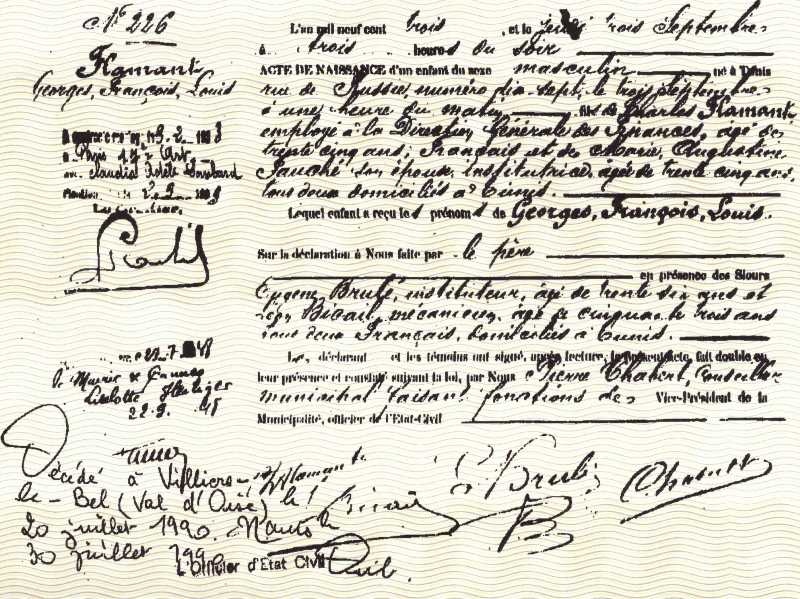 N° 226
Flamant
Georges, François, Louis
L'an mil neuf cent trois, et le jeudi trois Septembre
à trois heures du soir
ACTE DE NAISSANCE d'un enfant du sexe masculin né à Tunis
rue de Russie, numéro dix-sept, le trois Septembre
à une heure du matin, fils de Charles Flamant
employé à la Direction Générale des Finances, âgé de
trente cinq ans, Français et de Marie, Augustine
son épouse, institutrice, âgée de trente cinq ans,
tous deux domiciliés à Tunis.
Lequel enfant a reçu les prénoms de Georges, François, Louis.
Sur la déclaration à Nous faite par le père
en présence des Sieurs
Eugène Brulé, instituteur, âgé de trente six ans et
mécanicien, âgé de cinquante trois ans
tous deux Français, domiciliés à Tunis.
Le déclarant et les témoins ont signé, après lecture, le présent acte, fait double en
leur présence et constaté suivant la loi, par Nous Pierre Chabert, Conseiller
municipal faisant fonctions de Vice-Président de la
Municipalité, officier de l'Etat-Civil
Paris 17e Arrt
23-7
22.9.
Décédé à Villiers-
le-Bel (Val d'Oise) le
20 juillet 1990.
30 juillet
L'Officier d'Etat Civil
Flamant
Brulé
Chabert